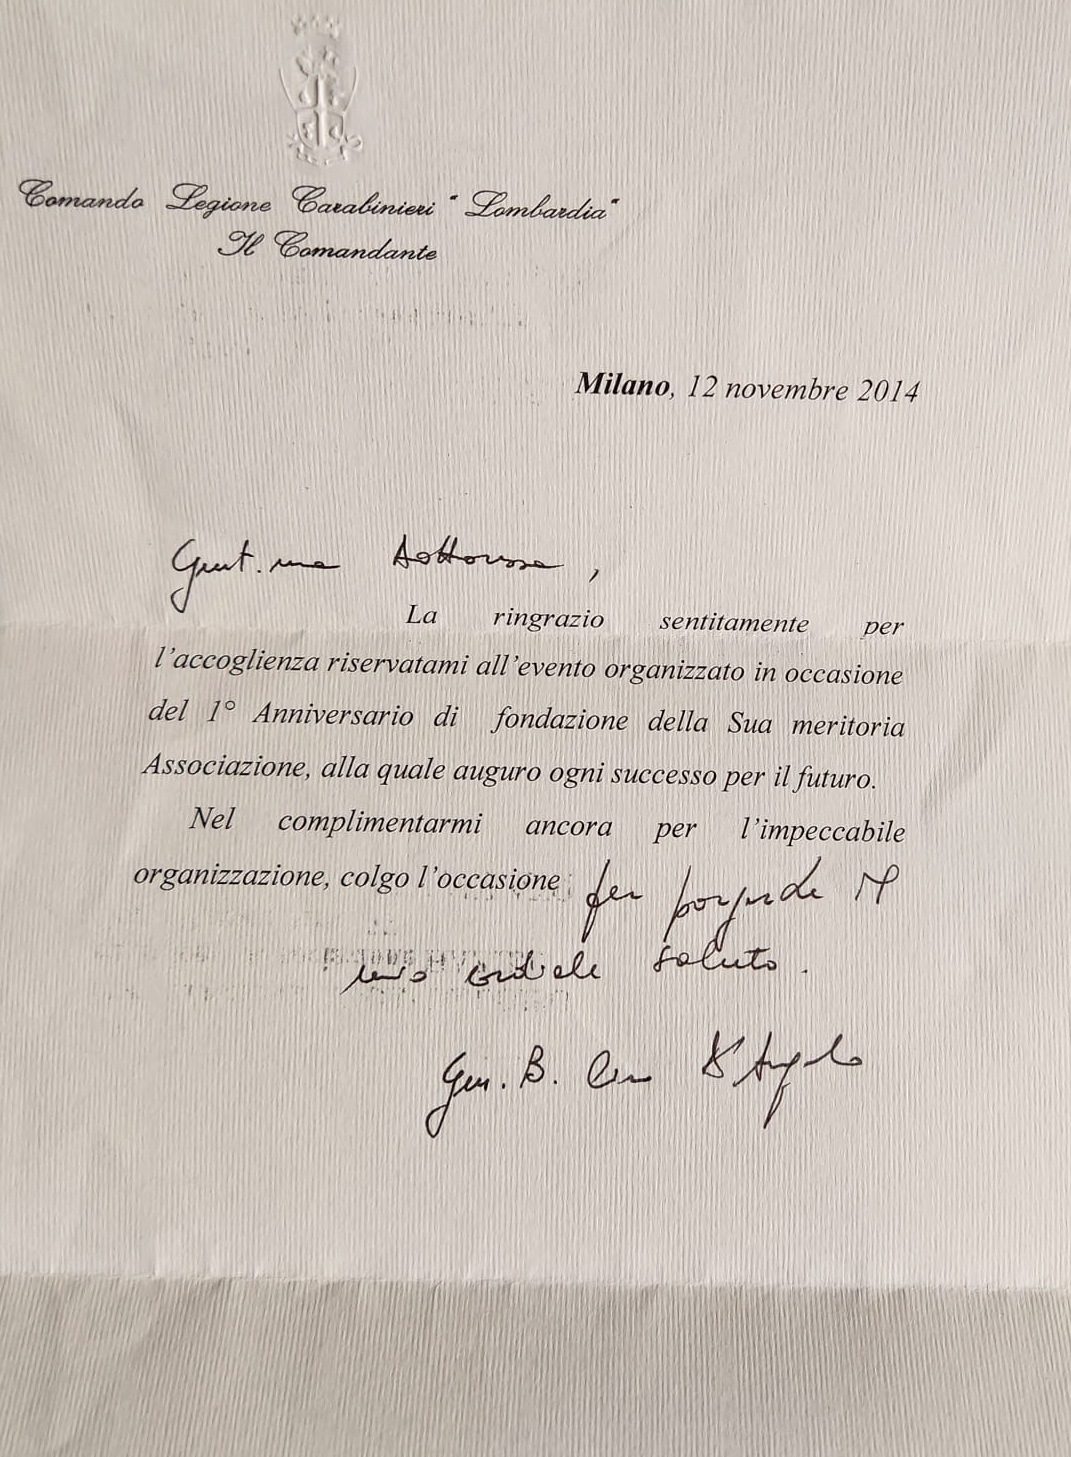 Comando Legione Carabinieri "Lombardia"
Il Comandante
Milano, 12 novembre 2014
Gent.ma Dottoressa,
La ringrazio sentitamente per
l'accoglienza riservatami all'evento organizzato in occasione
del 1° Anniversario di fondazione della Sua meritoria
Associazione, alla quale auguro ogni successo per il futuro.
Nel complimentarmi ancora per l'impeccabile
organizzazione, colgo l'occasione per porgerLe il
mio cordiale saluto.
Gen. B. D'Angelo